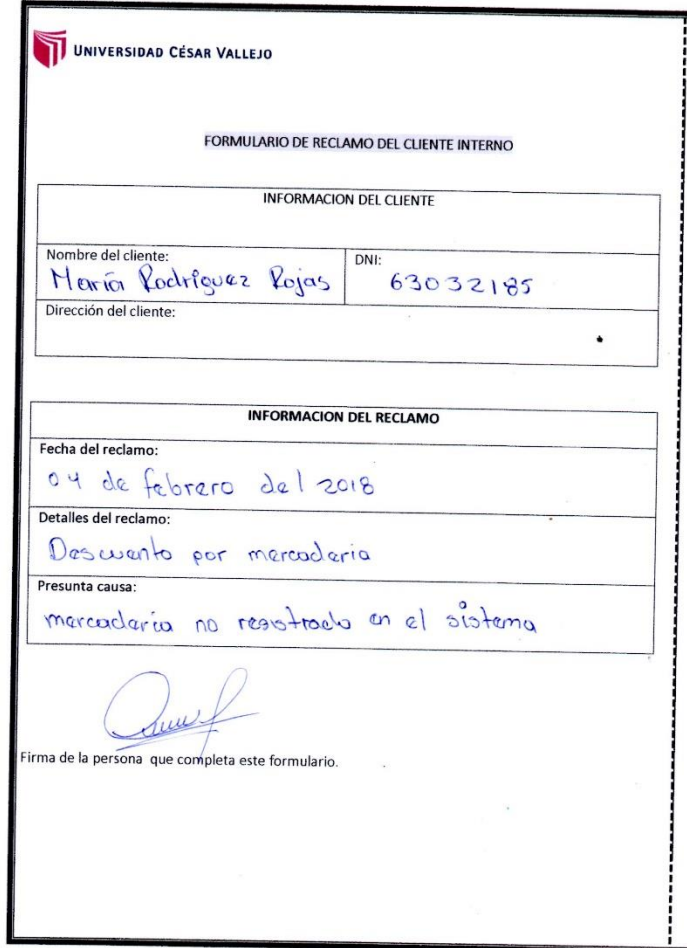 UNIVERSIDAD CÉSAR VALLEJO
FORMULARIO DE RECLAMO DEL CLIENTE INTERNO
INFORMACION DEL CLIENTE
Nombre del cliente:
María Rodríguez Rojas
DNI:
63032185
Dirección del cliente:
INFORMACION DEL RECLAMO
Fecha del reclamo:
04 de febrero del 2018
Detalles del reclamo:
Descuento por mercaderia
Presunta causa:
mercadería no registrado en el sistema
Firma de la persona que completa este formulario.